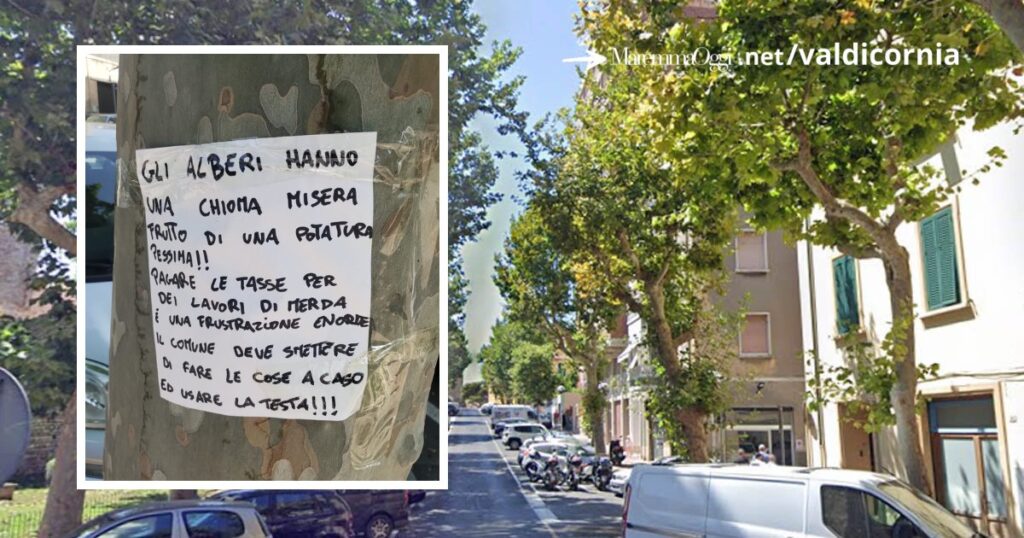 MaremmaOggi.net/valdicornia
GLI ALBERI HANNO
UNA CHIOMA MISERA
FRUTTO DI UNA POTATURA
PESSIMA!!
PAGARE LE TASSE PER
DEI LAVORI DI MERDA
È UNA FRUSTRAZIONE ENORME
IL COMUNE DEVE SMETTERE
DI FARE LE COSE A CASO
ED USARE LA TESTA!!!